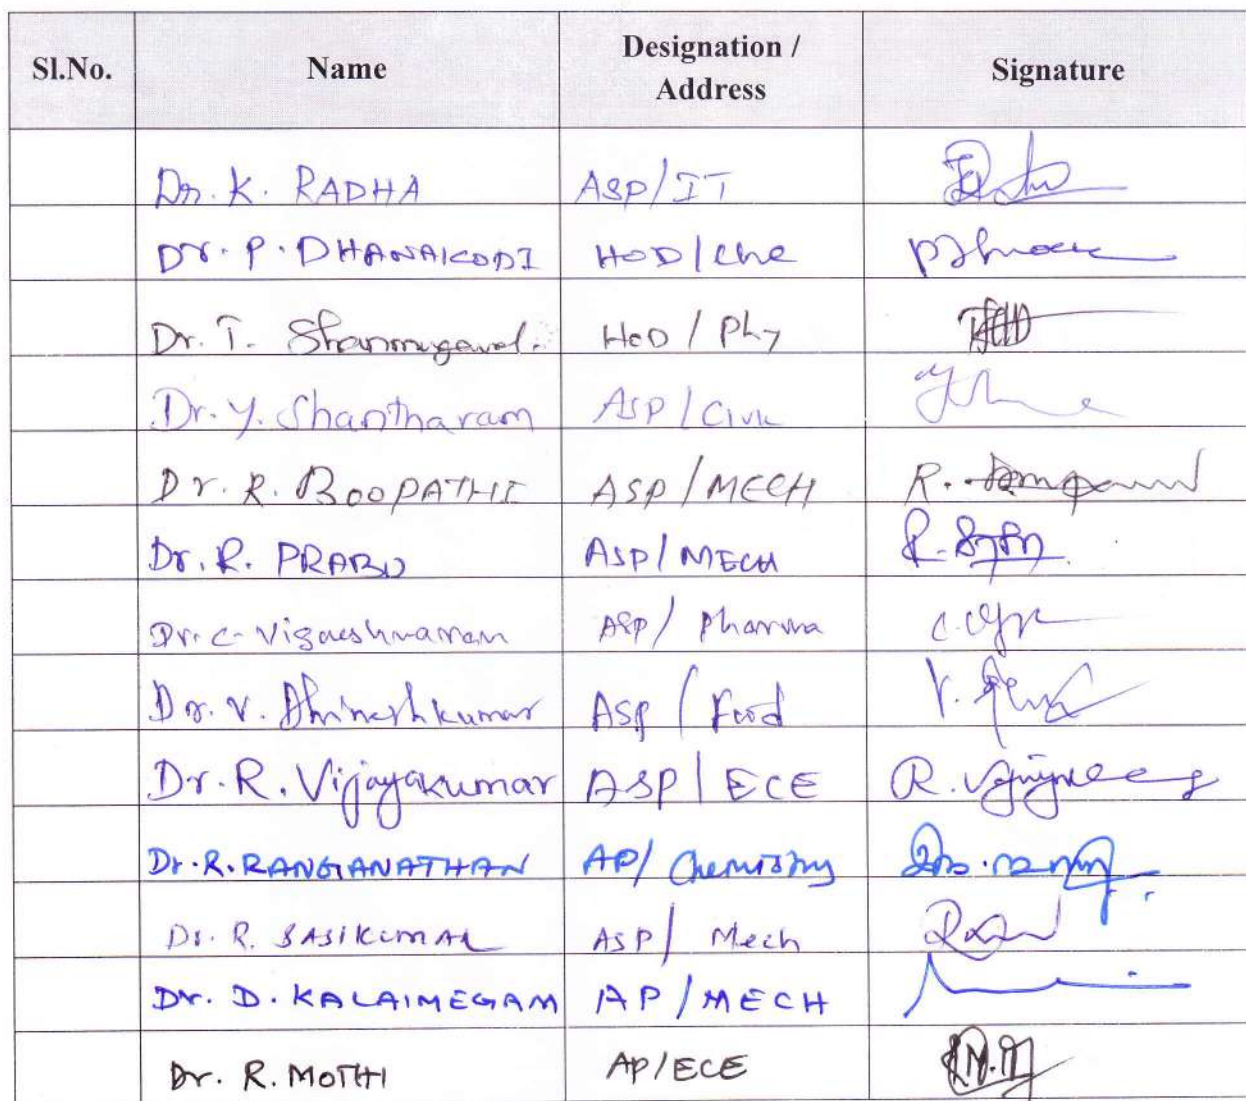 Sl.No. Name Designation / Address Signature
Dr. K. RADHA ASP/IT
Dr. P. DHANAKODI HOD/Che
Dr. T. Shanmugavel. HOD / Phy
Dr. Y. Shantharam ASP/Civil
Dr. R. BOOPATHI ASP/MECH R.
Dr. R. PRABU ASP/MECH
Dr. C. Vigneshwaran ASP/ Pharma
Dr. V. Dhineshkumar ASP / Food
Dr. R. Vijayakumar ASP/ECE
Dr. R. RANGANATHAN AP/ Chemistry
Dr. R. SASIKUMAR ASP/ Mech
Dr. D. KALAIMEGAM AP/MECH
Dr. R. MOTHI AP/ECE